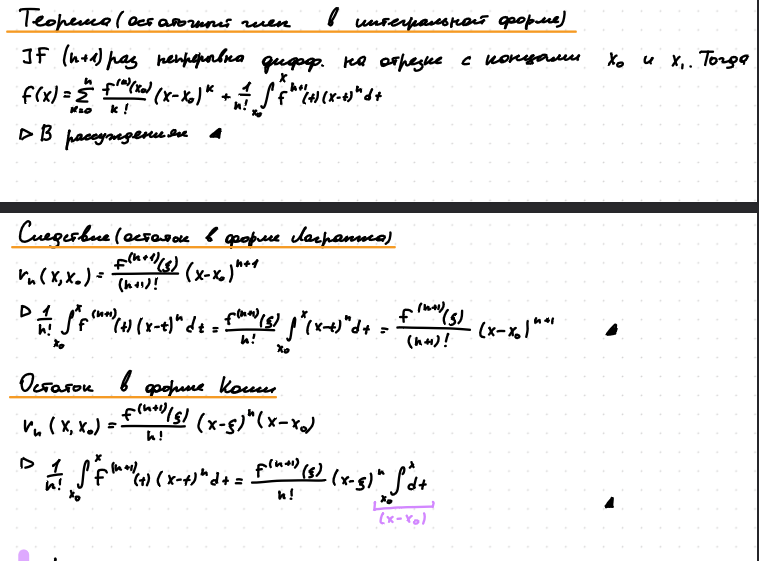 Теорема (остаточный член в интегральной форме)
]F (n+1) раз непрерывна дифф. на отрезке с концами x₀ и x₁. Тогда
f(x) = ∑_{k=0}^{n} f^{(k)}(x₀)/k! (x-x₀)^k + 1/n! ∫_{x₀}^{x} f^{n+1}(t) (x-t)^n dt
▷ В рассуждениях ◢
Следствие (остаток в форме Лагранжа)
r_n (x, x₀) = f^{(n+1)}(ξ)/(n+1)! (x-x₀)^{n+1}
▷ 1/n! ∫_{x₀}^{x} f^{(n+1)}(t) (x-t)^n dt = f^{(n+1)}(ξ)/n! ∫_{x₀}^{x} (x-t)^n dt = f^{(n+1)}(ξ)/(n+1)! (x-x₀)^{n+1} ◢
Остаток в форме Коши
r_n (x, x₀) = f^{(n+1)}(ξ)/n! (x-ξ)^n (x-x₀)
▷ 1/n! ∫_{x₀}^{x} f^{(n+1)}(t) (x-t)^n dt = f^{(n+1)}(ξ)/n! (x-ξ)^n ∫_{x₀}^{x} dt ◢
(x-x₀)